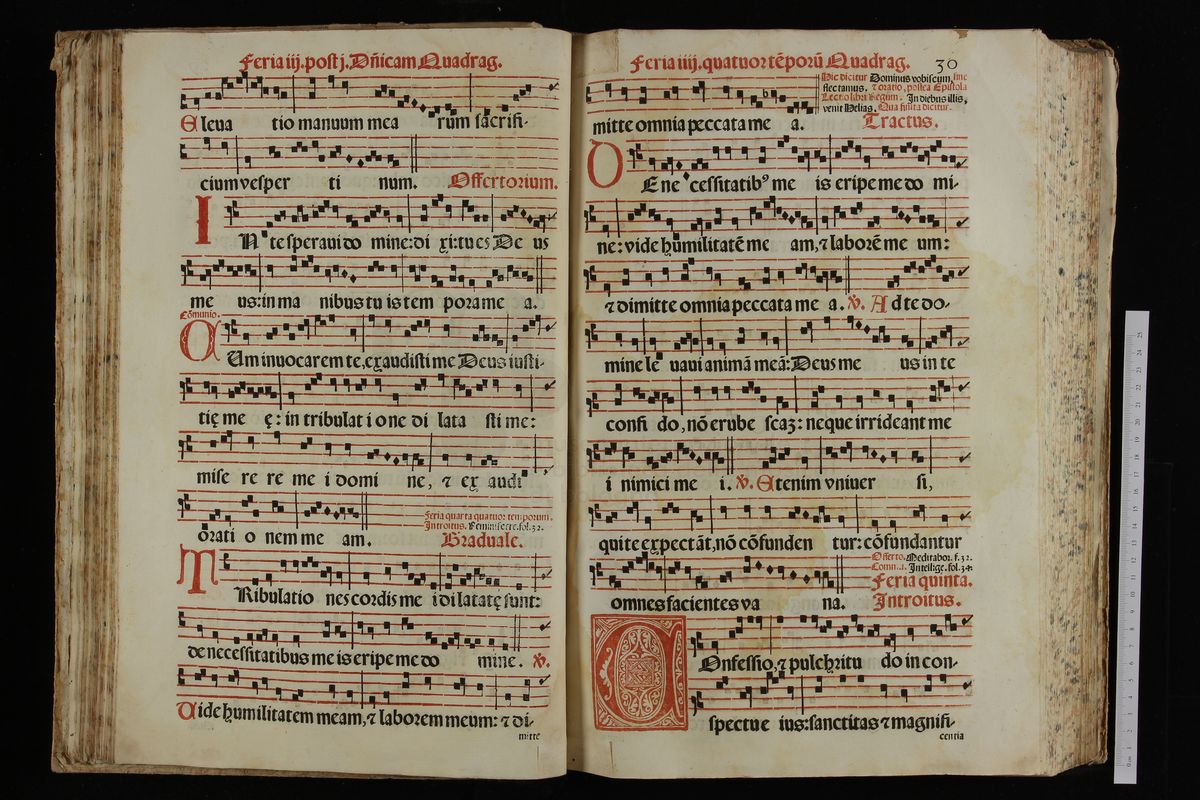 Feria iij. post j. Dñicam Quadrag.
Eleua tio manuum mea rum sacrifi-
cium vesper ti num. Offertorium.
IN te speraui do mine: di xi: tu es De us
me us: in ma nibus tu is tem pora me a.
Cõmunio.
CUm inuocarem te, exaudisti me Deus iusti-
tię me ę: in tribulat i o ne di lata sti me:
mise re re me i domi ne, ⁊ ex audi
orati o nem me am.
Feria quarta quatuor temporum.
Introitus. Reminiscere. fol. 32.
Graduale.
TRibulatio nes cordis me i dilatatę sunt:
de necessitatibus me is eripe me do mine. ℣.
Uide humilitatem meam, ⁊ laborem meum: ⁊ di-
mitte
Feria iiij. quatuor tẽporũ Quadrag. 30
mitte omnia peccata me a.
Hic dicitur Dominus vobiscum, sine
flectamus. ⁊ oratio, postea Epistola
Lectio libri Regum. In diebus illis,
venit Helias. Qua finita dicitur.
Tractus.
DE ne cessitatibꝰ me is eripe me do mi-
ne: vide humilitatẽ me am, ⁊ laborẽ me um:
⁊ dimitte omnia peccata me a. ℣. Ad te do-
mine le uaui animã meã: Deus me us in te
confi do, nõ erube scaʒ: neque irrideant me
i nimici me i. ℣. Etenim vniuer si,
qui te expectãt, nõ cõfunden tur: cõfundantur
omnes facientes va na.
Offerto. Meditabor. f. 32.
Intellige. fol. 34.
Feria quinta.
Introitus.
COnfessio, ⁊ pulchritu do in con-
spectu e ius: sanctitas ⁊ magnifi-
centia